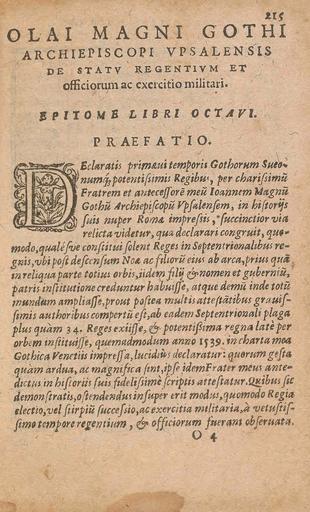 215
OLAI MAGNI GOTHI
ARCHIEPISCOPI VPSALENSIS
DE STATV REGENTIVM ET
officiorum ac exercitio militari.
EPITOME LIBRI OCTAVI.
PRAEFATIO.
DEclaratis primæui temporis Gothorum Sueo-
numq́; potentisimis Regibus, per charisimũ
Fratrem et antecessorẽ meũ Ioannem Magnũ
Gothũ Archiepiscopũ Vpsalensem, in historijs
suis nuper Romæ impressis, succinctior via
relicta videtur, qua declarari congruit, quo-
modo, qualésue constitui solent Reges in Septentrionalibus re-
gnis, vbi post descensum Noæ ac filiorũ eius ab arca, prius quã
in reliqua parte totius orbis, iidem filij & nomen et guberniũ,
patris institutione creduntur habuisse, atque demũ inde totũ
mundum ampliasse, prout postea multis attestãtibus grauis-
simis authoribus compertũ est, ab eadem Septentrionali plaga
plus quàm 34. Reges exiisse, & potentisima regna latè per
orbem instituisse, quemadmodum anno 1539. in charta mea
Gothica Venetiis impressa, lucidiùs declaratur: quorum gesta
quàm ardua, ac magnifica sint, ipse idem Frater meus ante-
dictus in historiis suis fidelisimè scriptis attestatur. Quibus sic
demonstratis, ostendendus insuper erit modus, quomodo Regia
electio, vel stirpiũ successio, ac exercitia militaria, à vetustis-
simo tempore regentium, & officiorum fuerant obseruata.
O 4